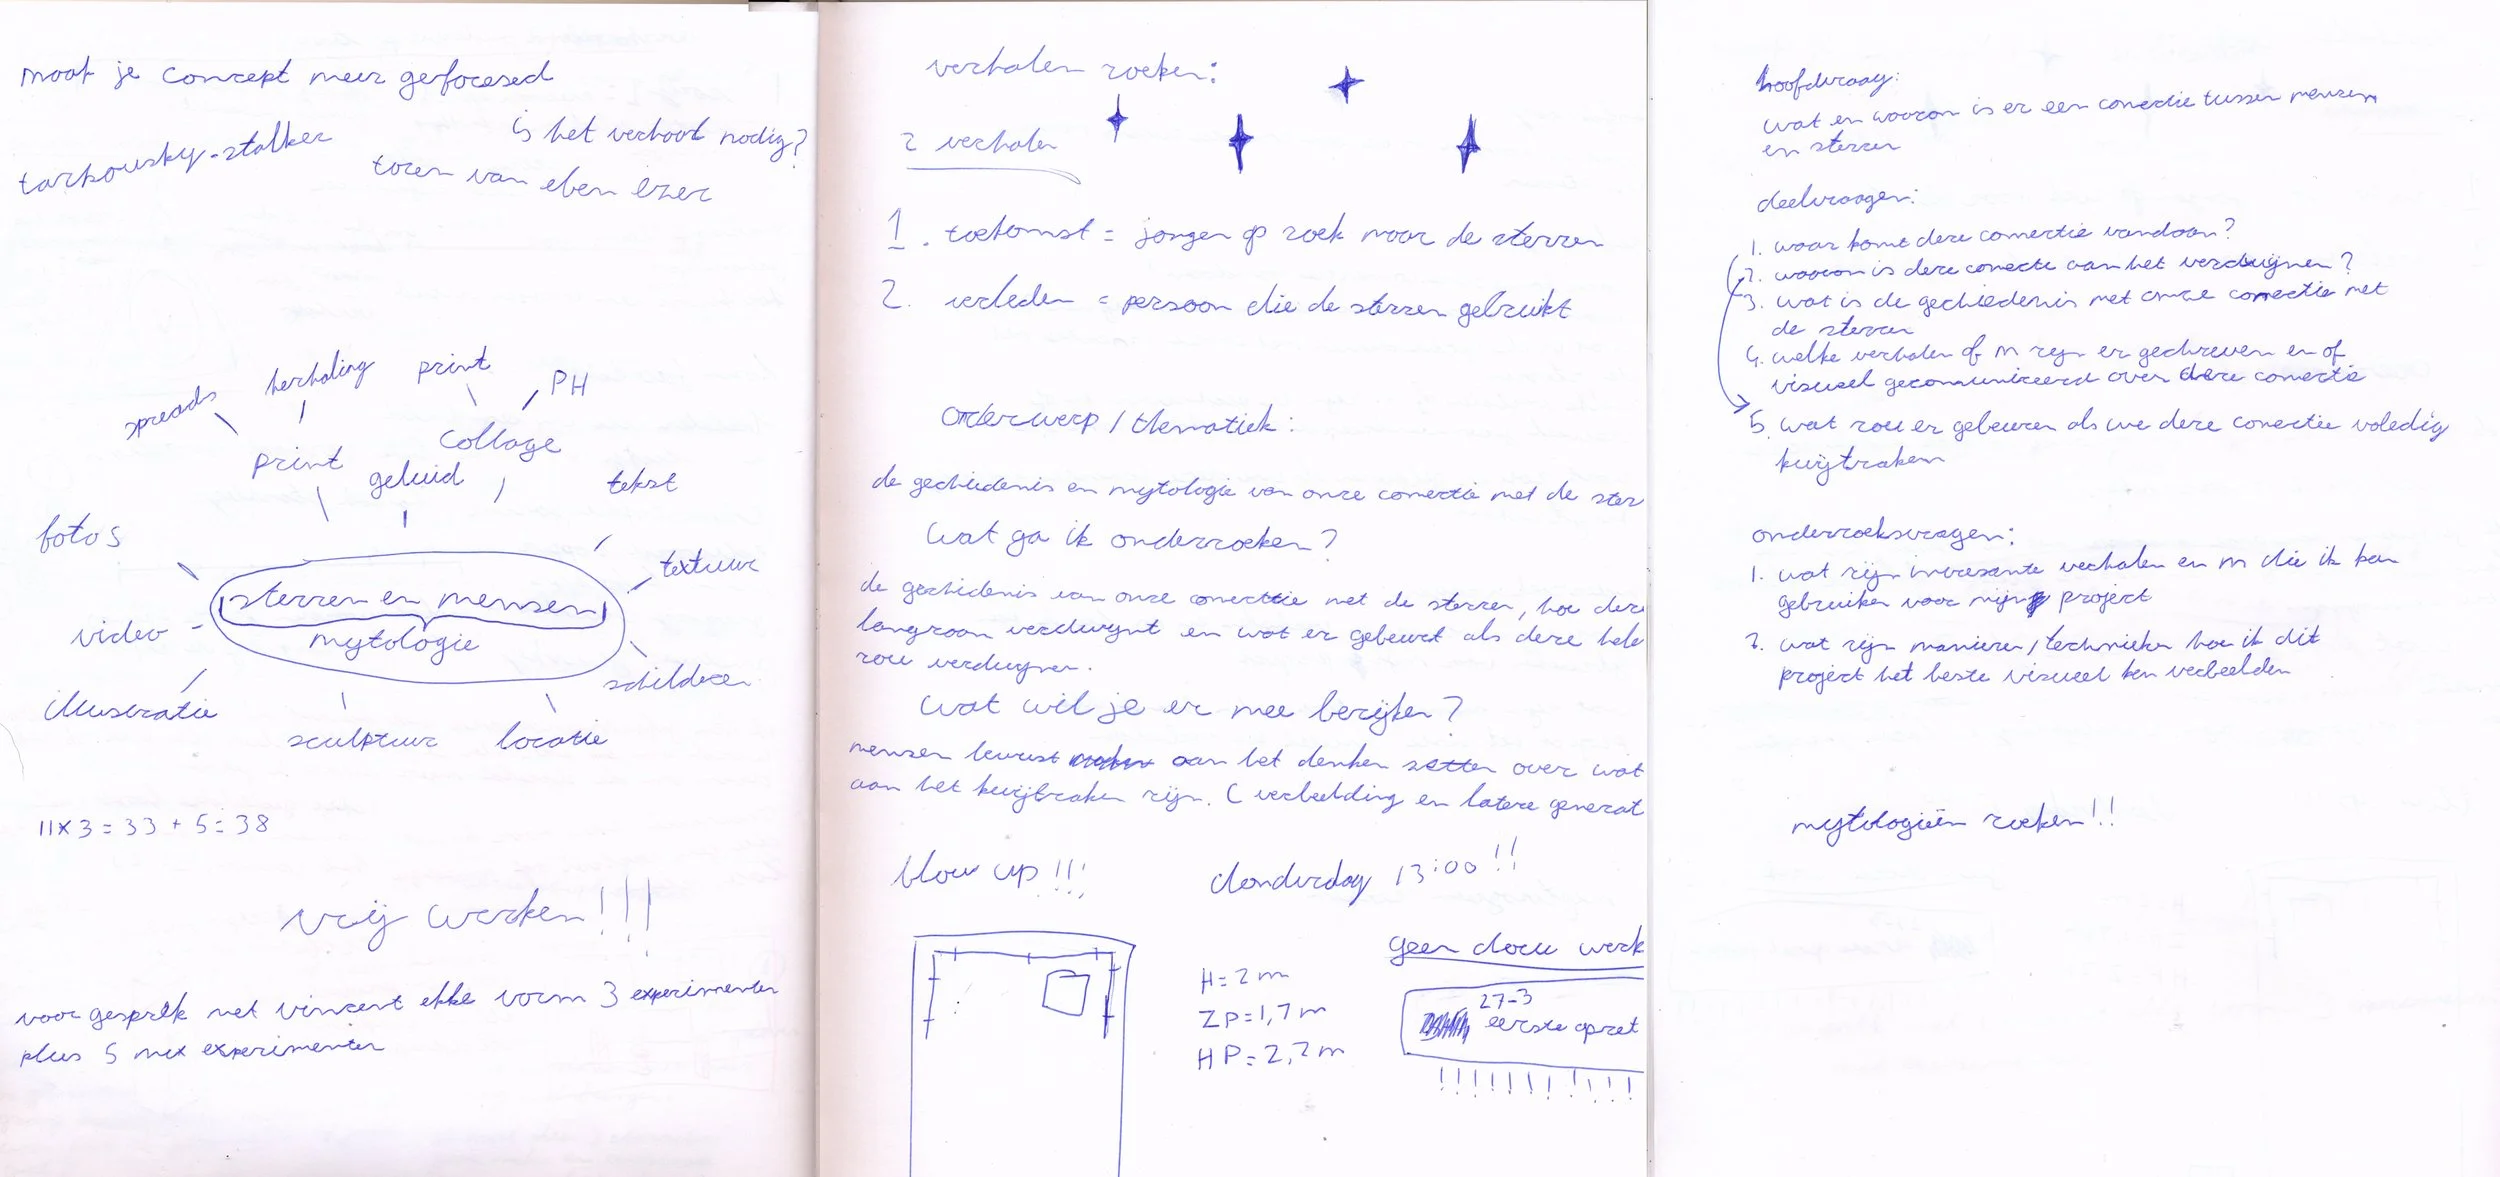 maak je concept meer gefocesed
is het verhaal nodig?
tarkousky-stalker
toren van eben ezer
spreads
herhaling
print
PH
print
geluid
collage
tekst
fotos
textuur
sterren en mensen
mytologie
video
schilderen
illustratie
sculptuur
locatie
11x3=33+5=38
vrij werken!!!
voor gesprek met vincent elke vorm 3 experimenten
plus 5 mix experimenten
verhalen zoeken:
2 verhalen
1. toekomst = jongen op zoek naar de sterren
2. verleden = persoon die de sterren gebruikt
onderwerp / thematiek:
de gechiedenis en mytologie van onze conectie met de ster
wat ga ik onderzoeken?
de geschidenis van onze conecttie met de sterren, hoe deze
langzaan verdwynt en wat er gebeurt als deze hele
zou verdwynen.
wat wil je er mee berijken?
mensen bewust aan het denken zetten over wat
aan het kwijtraken zijn. (verbeelding en latere generat
blow up!!!
donderdag 13:00!!
geen docu werk
H=2m
ZP=1,7m
HP=2,2m
27-3
eerste opzet
!!!!!!!!!!
hoofdvraag:
wat en waarom is er een conectie tussen mensen
en sterren
deelvraagen:
1. waar komt deze connectie vandaan?
2. waarom is deze conecte aan het verdwijnen?
3. wat is de gechiedenis met onze connectie met
de sterren
4. welke verhalen of m zijn er gechreven en of
visueel gecomuniceerd over deze conectie
5. wat zou er gebeuren als we deze conectie voledig
kwijtraken
onderzoeksvragen:
1. wat zijn interesante verhalen en m die ik kan
gebruiken voor mijn project
2. wat zijn manieren/technieken hoe ik dit
project het beste visueel kan verbeelden
mytologieën zoeken!!